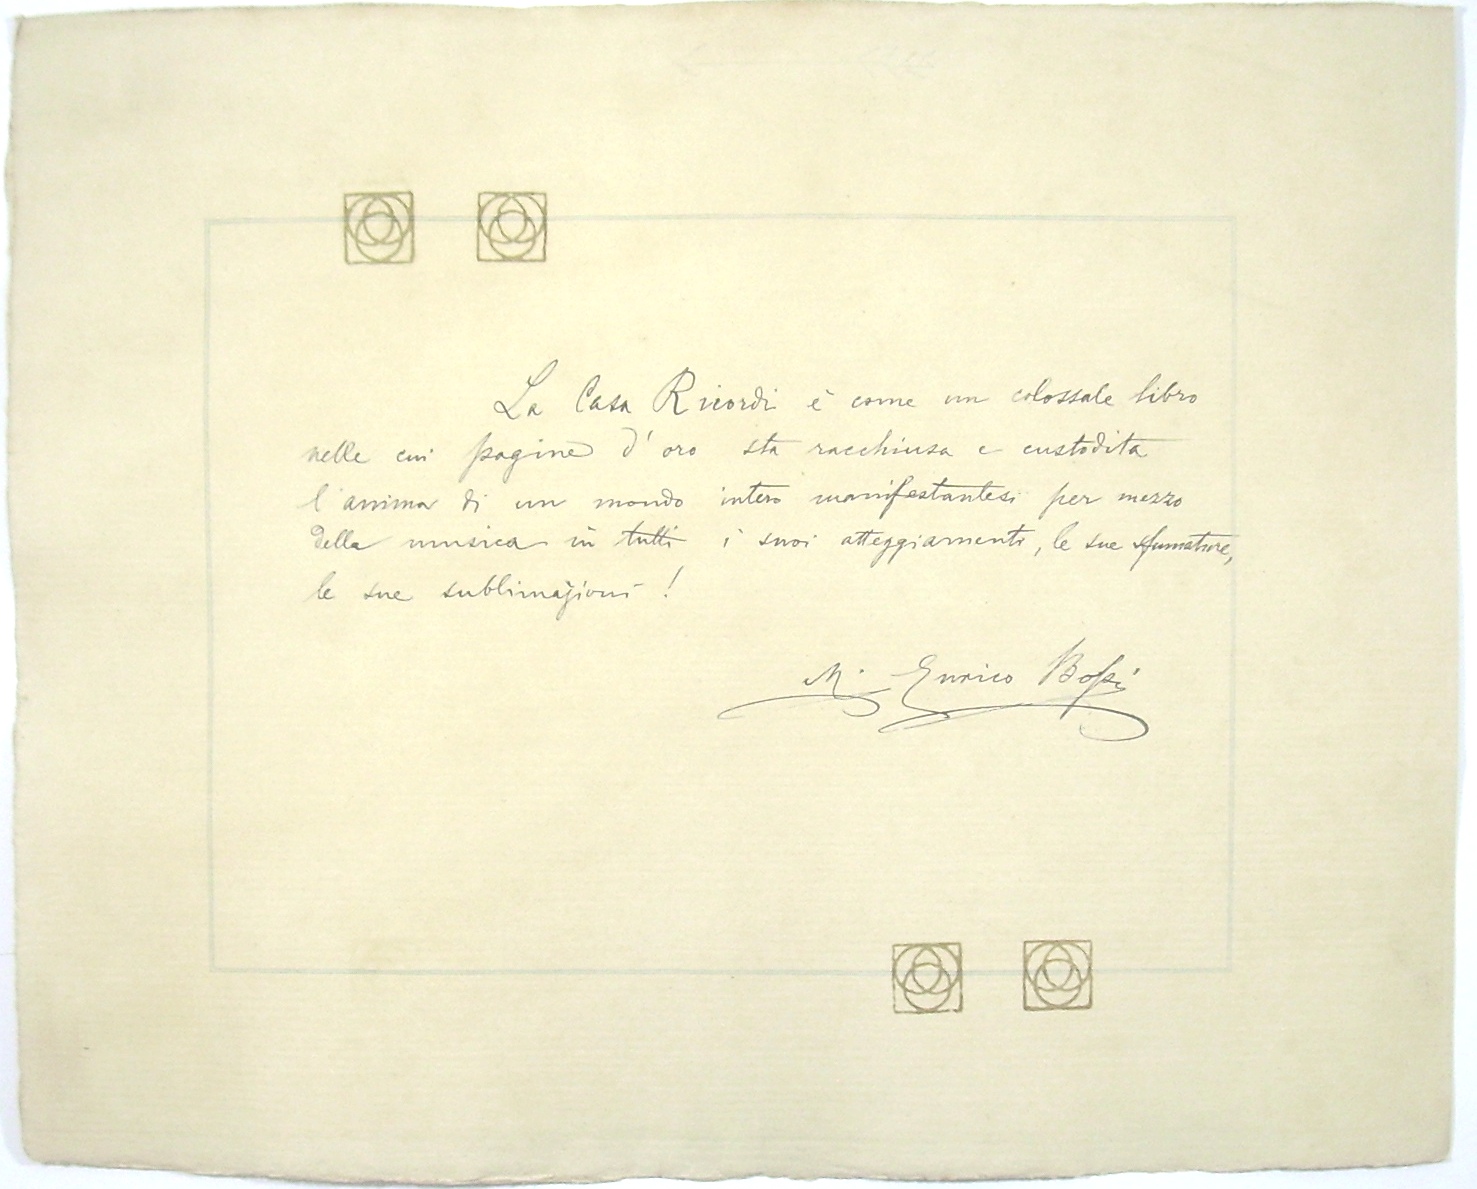 La Casa Ricordi è come un colossale libro
nelle cui pagine d'oro sta racchiusa e custodita
l'anima di un mondo intero manifestantesi per mezzo
della musica in tutti i suoi atteggiamenti, le sue sfumature,
le sue sublimazioni!
M. Enrico Bossi